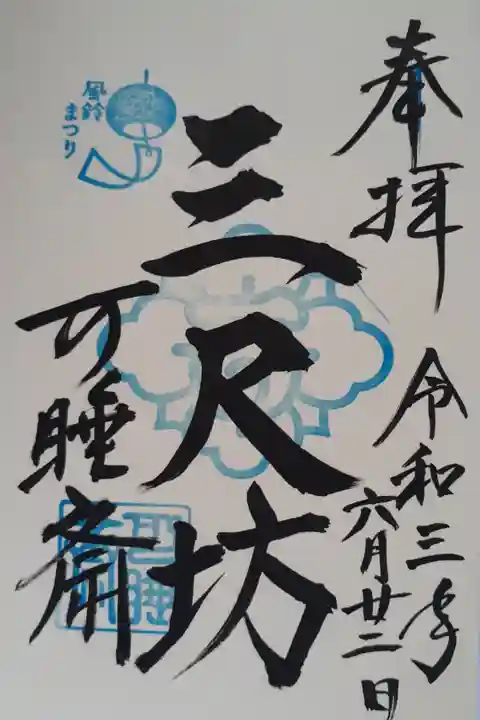 奉拝
令和三年
六月廿二日
三尺坊
可睡斎
風鈴
まつり